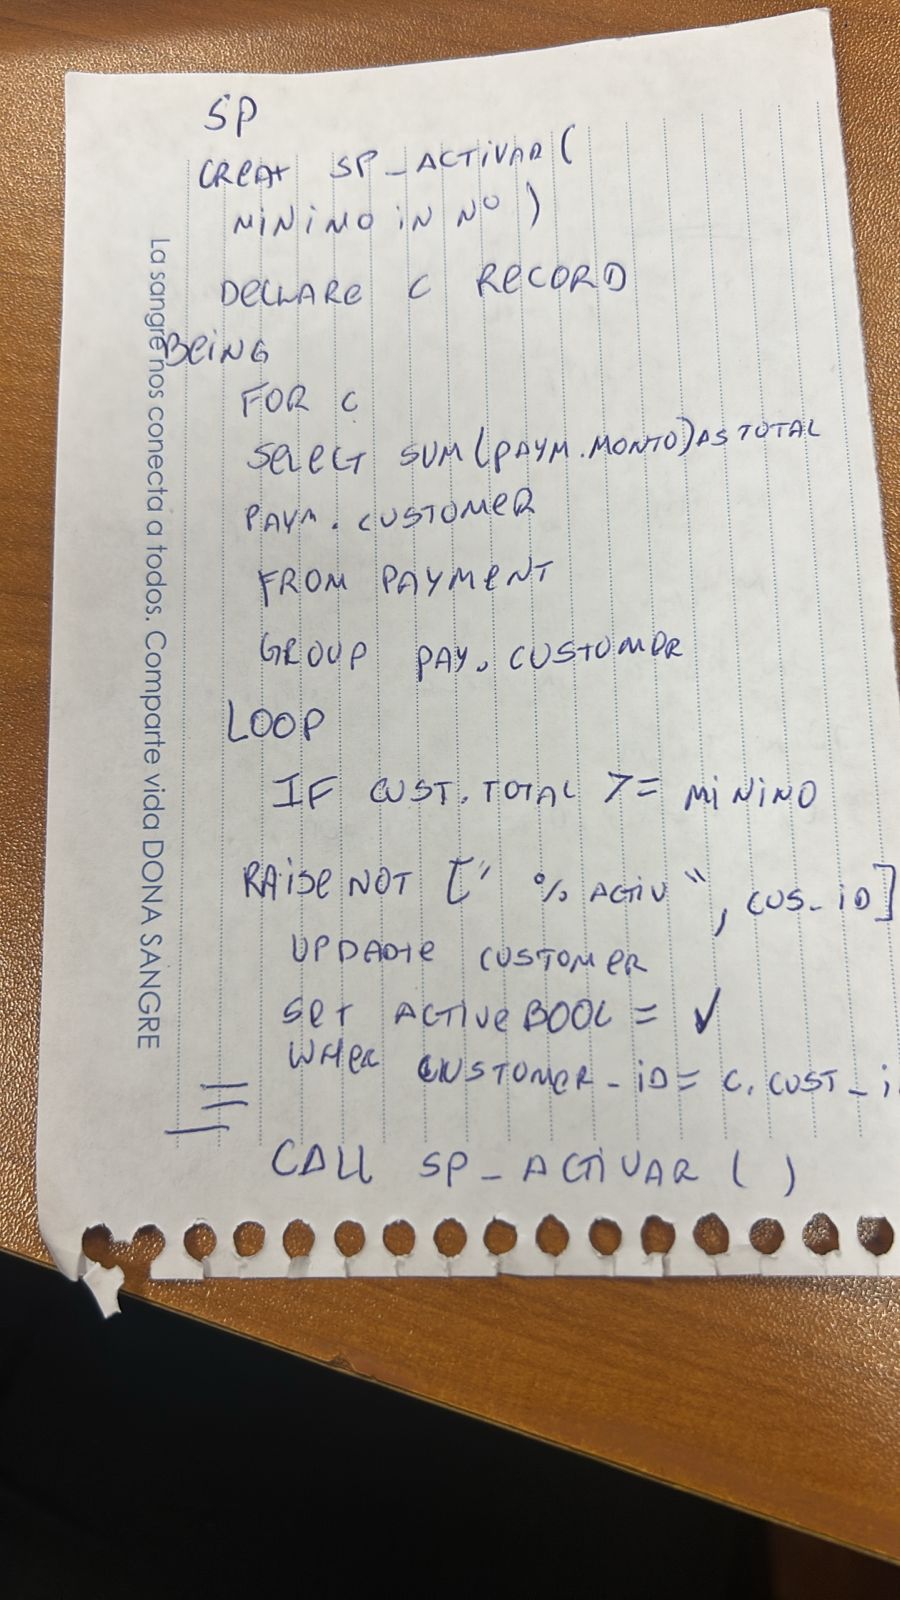 SP
CREAT SP_ACTIVAR(
MINIMO IN Nº)
DECLARE C RECORD
BEING
FOR C
SELECT SUM(PAYM.MONTO)AS TOTAL
PAYM.CUSTOMER
FROM PAYMENT
GROUP PAY.CUSTOMDR
LOOP
IF CUST.TOTAL >= MININO
RAISE NOT [" % ACTIV", CUS_ID]
UPDADTE CUSTOMER
SET ACTIVE BOOL = ✓
WHER CUSTOMER_ID = C.CUST_i
CALL SP_ACTIVAR ( )
La sangre nos conecta a todos. Comparte vida DONA SANGRE